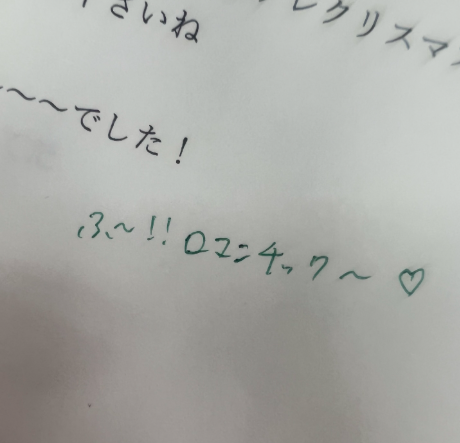 さいね
クリスマ
〜〜でした！
ふ〜!!ロマンチック〜♡